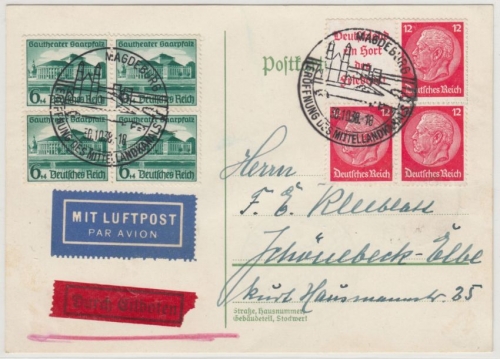 Gautheater Saarpfalz
Gautheater Saarpfalz
6 Deutsches Reich
6 Deutsches Reich
Gautheater Saarpfalz
6 Deutsches Reich
6 Deutsches Reich
MAGDEBURG
ERÖFFNUNG DES MITTELLANDKANALS
30.10.38.-16
Deutschland
ein Hort
des
Friedens
12
Deutsches Reich
12
Deutsches Reich
12
Deutsches Reich
MAGDEBURG
ERÖFFNUNG DES MITTELLANDKANALS
30.10.38.-16
Postkarte
MIT LUFTPOST
PAR AVION
Durch Eilboten
Herrn
F. E. Kleiblatt
Schönebeck-Elbe
Kurt Hausmannstr. 25
Straße, Hausnummer,
Gebäudeteil, Stockwerk